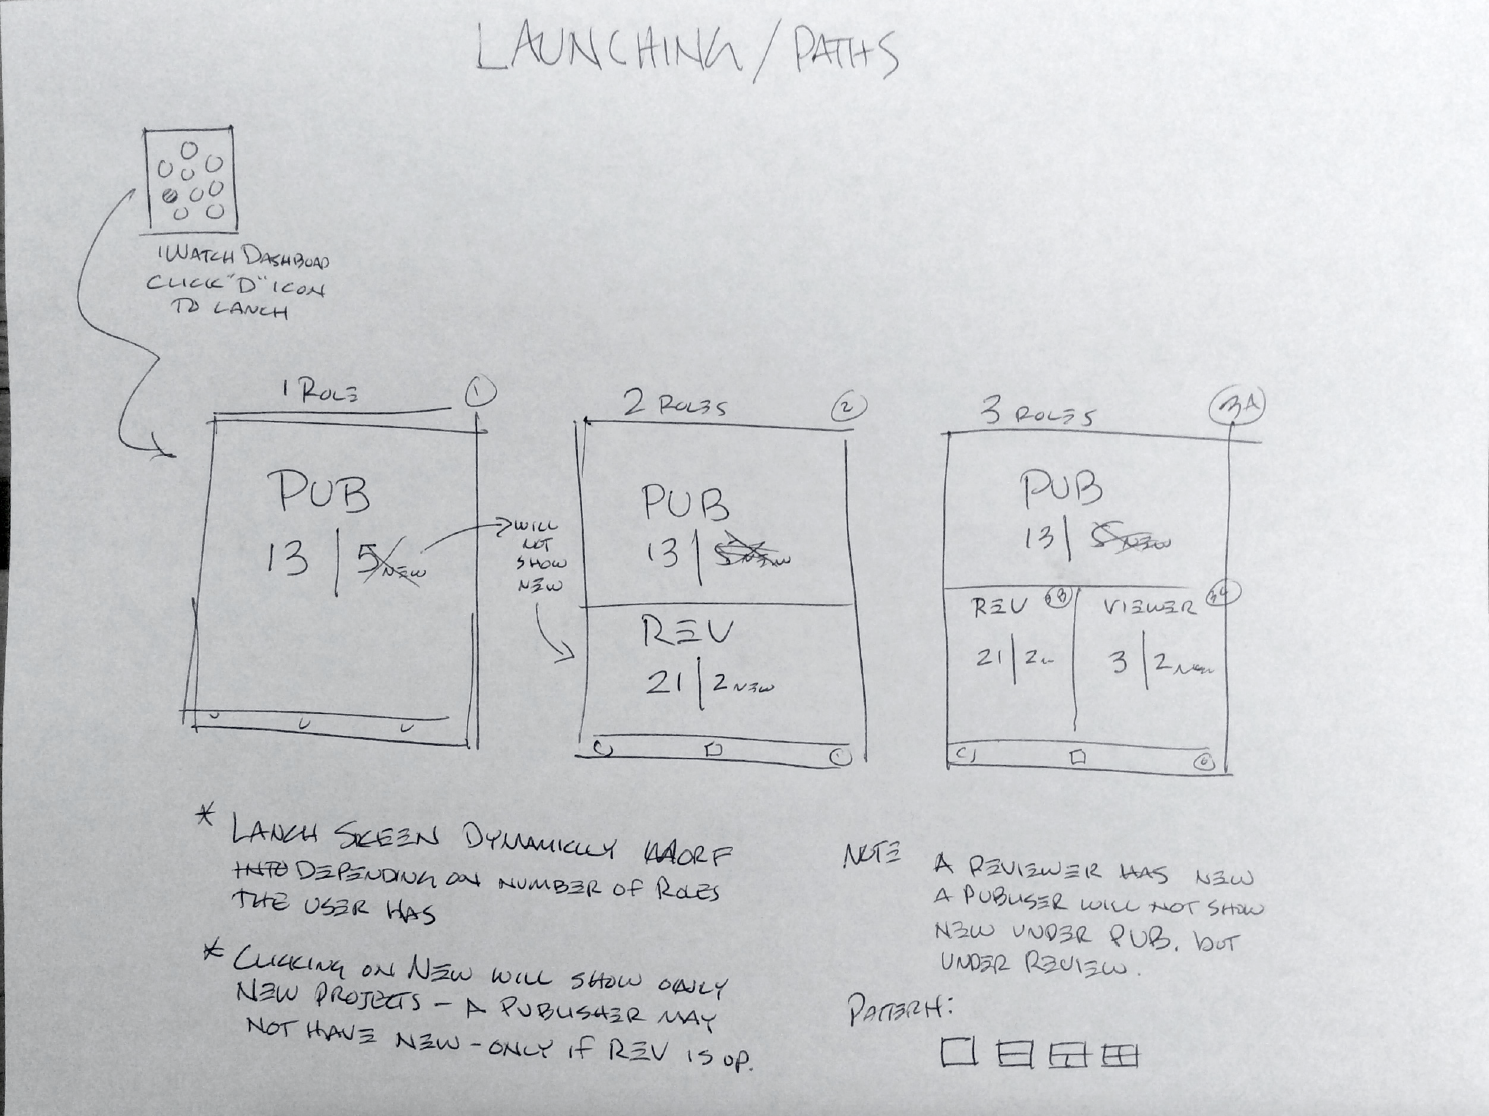 LAUNCHING/PATHS
IWATCH DASHBOAD
CLICK "D" ICON
TO LANCH
1 ROLE
1
PUB
13 | 5 NEW
WILL
NOT
SHOW
NEW
2 ROLES
2
PUB
13 | 5 NEW
REV
21 | 2 NEW
3 ROLES
3A
PUB
13 | 5 NEW
REV 3B
21 | 2
VIEWER 3C
3 | 2 NEW
* LANCH SKEEN DYNAMICLLY MORF
INTO DEPENDING ON NUMBER OF ROLES
THE USER HAS
* CLICKING ON NEW WILL SHOW ONLY
NEW PROJECTS - A PUBLISHER MAY
NOT HAVE NEW - ONLY IF REV IS UP.
NOTE A REVIEWER HAS NEW
A PUBLISER WILL NOT SHOW
NEW UNDER PUB. BUT
UNDER REVIEW.
PATTERN: